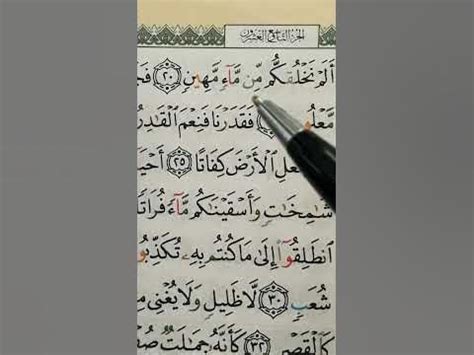 الجزء التاسع والعشرون
أَلَمْ نَخْلُقكُّم مِّن مَّآءٍ مَّهِينٍ ٢٠ فَجَ
مَّعْلُو فَقَدَرْنَا فَنِعْمَ ٱلْقَٰدِرُ
عَلِ ٱلْأَرْضَ كِفَاتًا ٢٥ أَحْيَ
شَٰمِخَٰتٍ وَأَسْقَيْنَٰكُم مَّآءً فُرَاتً
ٱنطَلِقُوٓا۟ إِلَىٰ مَا كُنتُم بِهِۦ تُكَذِّبُو
شُعَبٍ ٣٠ لَّا ظَلِيلٍ وَلَا يُغْنِى مِ
كَٱلْقَصْرِ ٣٢ كَأَنَّهُۥ جِمَٰلَتٌ صُفْ